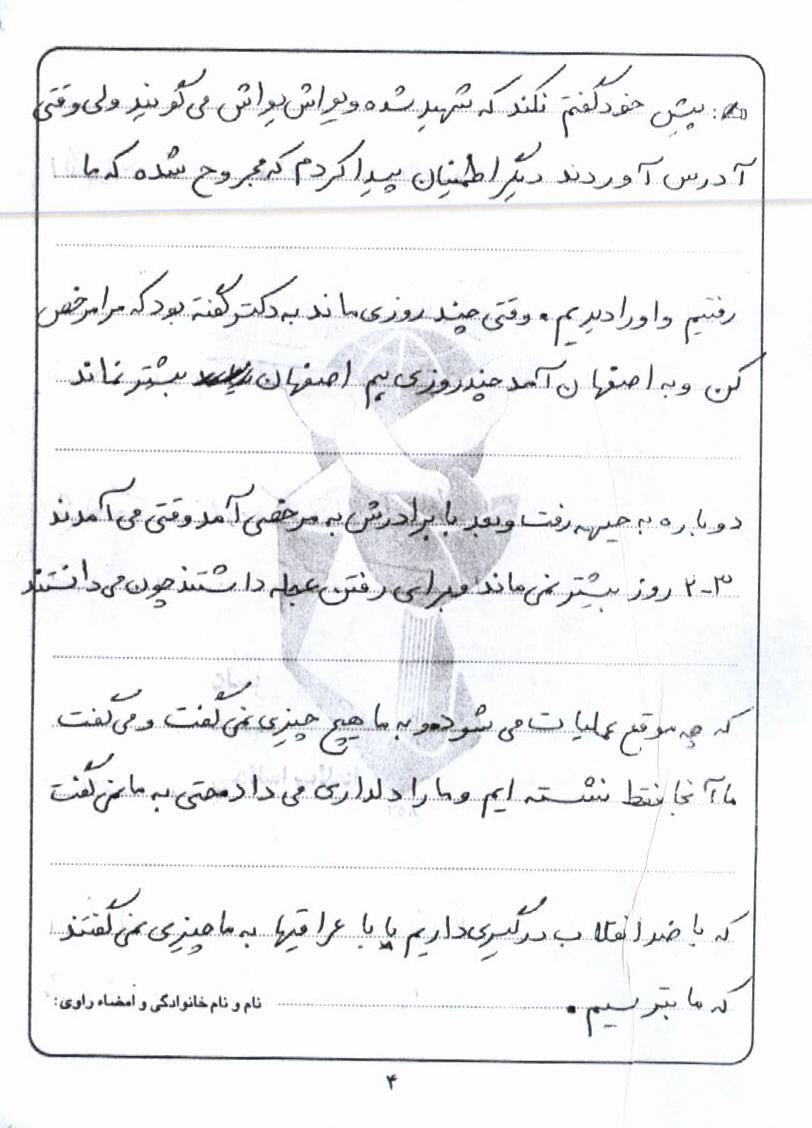 ج: پیش خود گفتم نکند که شهید شده و یواش یواش می گویند ولی وقتی
آدرس آوردند دیگر اطمنیان پیدا کردم که مجروح شده که ما
رفتیم و او را دیدیم. وقتی چند روزی ماند به دکتر گفته بود که مرا مرخص
کن و به اصفهان آمد چند روزی هم اصفهان بیشتر نماند
دوباره به جبهه رفت و بعد با برادرش به مرخصی آمد وقتی می آمدند
۳-۲ روز بیشتر نمی ماند و برای رفتن عجله داشتند چون می دانستند
که چه موقع عملیات می شود و به ما هیچ چیزی نمی گفت و می گفت
ما آنجا فقط نشسته ایم و ما را دلداری می داد حتی به ما نمی گفت
که با ضد انقلاب درگیری داریم یا با عراقیها به ما چیزی نمی گفتند
که ما بترسیم.
نام و نام خانوادگی و امضاء راوی:
۴